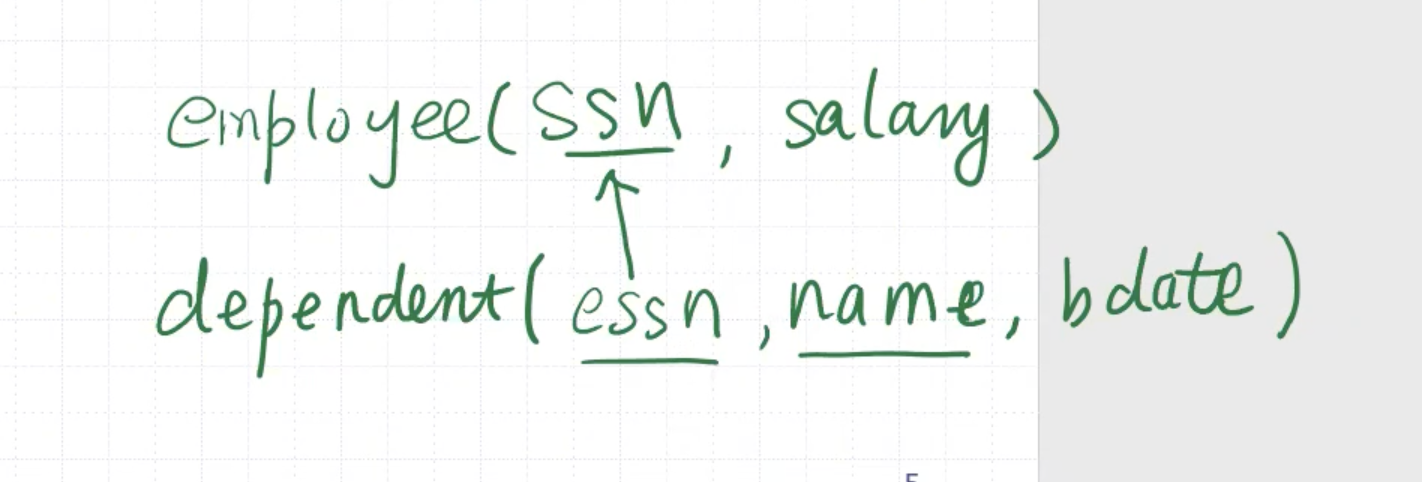 employee(ssn, salary)
dependent(essn, name, bdate)